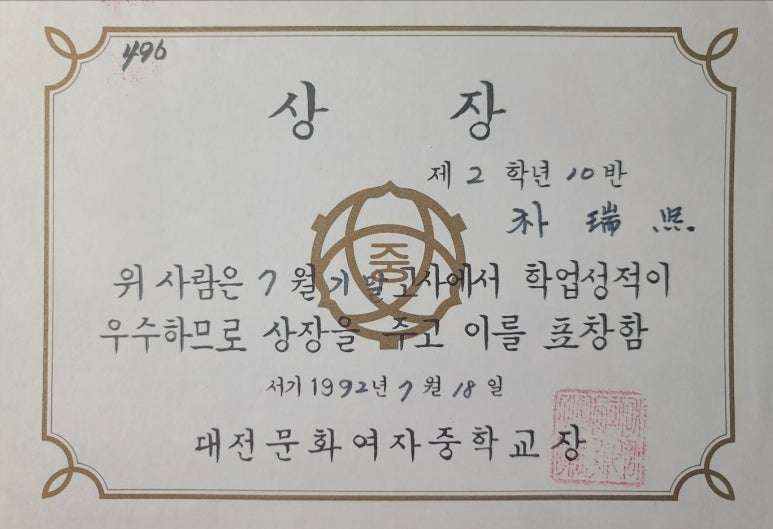 496
상 장
제 2 학년 10 반
朴 瑞 熙
중
위 사람은 7 월 기말고사에서 학업성적이
우수하므로 상장을 주고 이를 표창함
서기 1992년 7 월 18 일
대전문화여자중학교장